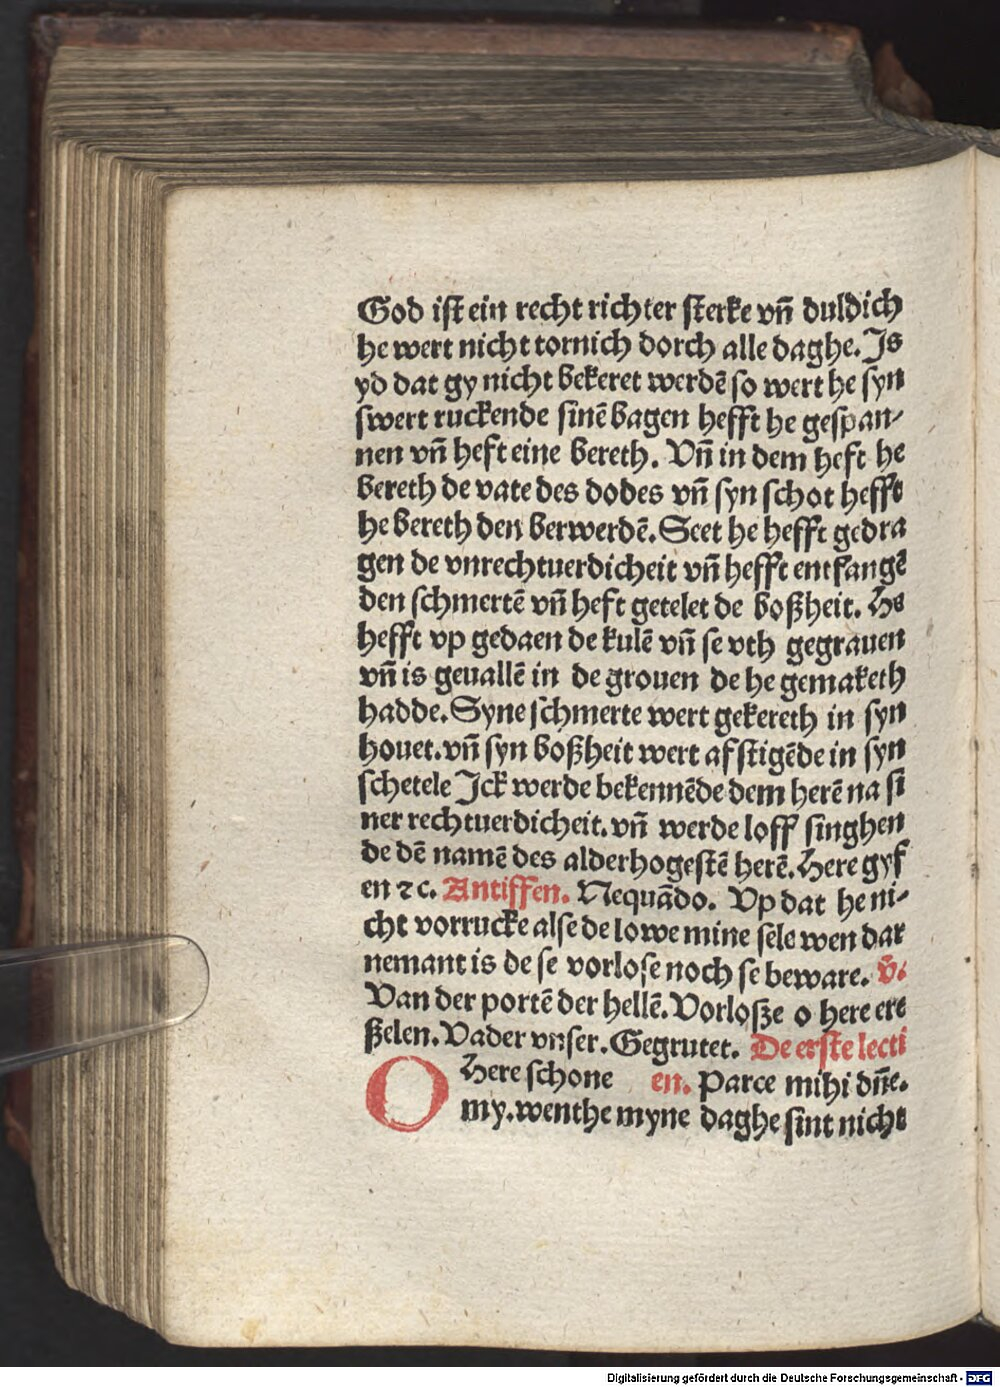 God ist ein recht richter sterke vñ duldich
he wert nicht tornich dorch alle daghe. Js
yd dat gy nicht bekeret werdē so wert he syn
swert ruckende sinē bagen hefft he gespan-
nen vñ heft eine bereth. Vñ in dem heft he
bereth de vate des dodes vñ syn schot hefft
he bereth den berwerdē. Seet he hefft gedra
gen de vnrechtuerdicheit vñ hefft entfangē
den schmertē vñ heft getelet de boßheit. He
hefft vp gedaen de kulē vñ se vth gegrauen
vñ is geuallē in de grouen de he gemaketh
hadde. Syne schmerte wert gekereth in syn
houet. vñ syn boßheit wert afstigēde in syn
schetele Jck werde bekennēde dem herē na si
ner rechtuerdicheit. vñ werde loff singhen
de dē namē des alderhogestē herē. Here gyf
en ⁊c. Antiffen. Nequādo. Vp dat he ni-
cht vorrucke alse de lowe mine sele wen dar
nemant is de se vorlose noch se beware. v̄.
Van der portē der hellē. Vorlosze o here ere
ßelen. Vader vnser. Gegrutet. De erste lecti
O Here schone en. Parce mihi dñe.
my. wenthe myne daghe sint nicht
Digitalisierung gefördert durch die Deutsche Forschungsgemeinschaft - DFG